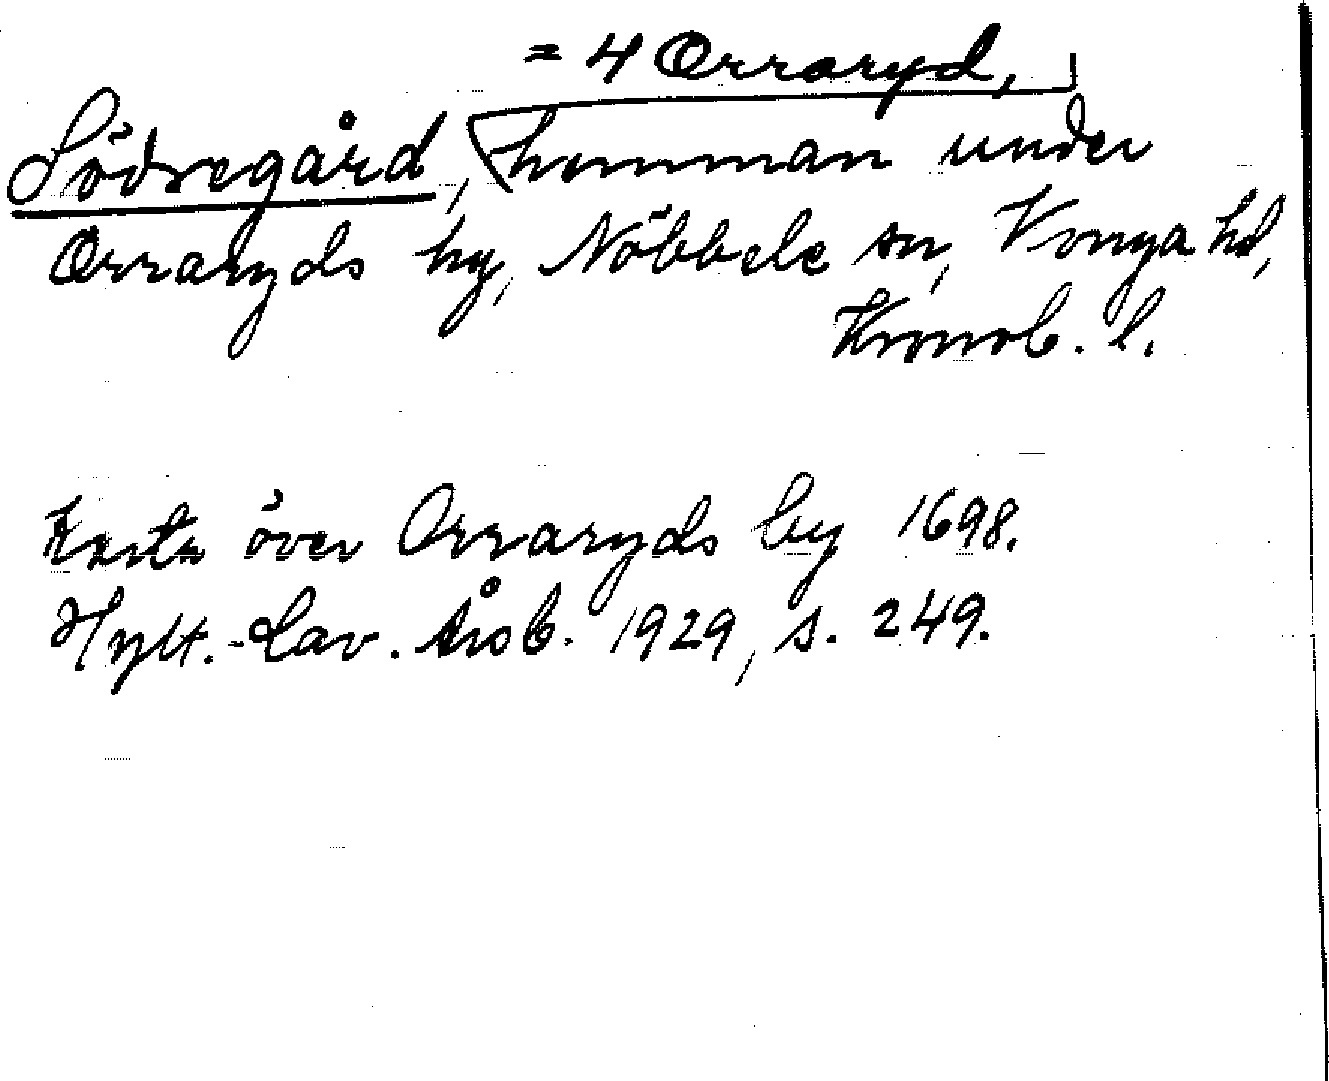 = 4 Orraryd,
Södregård, hemman under
Orraryds by, Nöbbele sn, Konga hd,
Kronob. l.
Karta över Orraryds by 1698.
Hylt.-Cav. Årsb. 1929, s. 249.